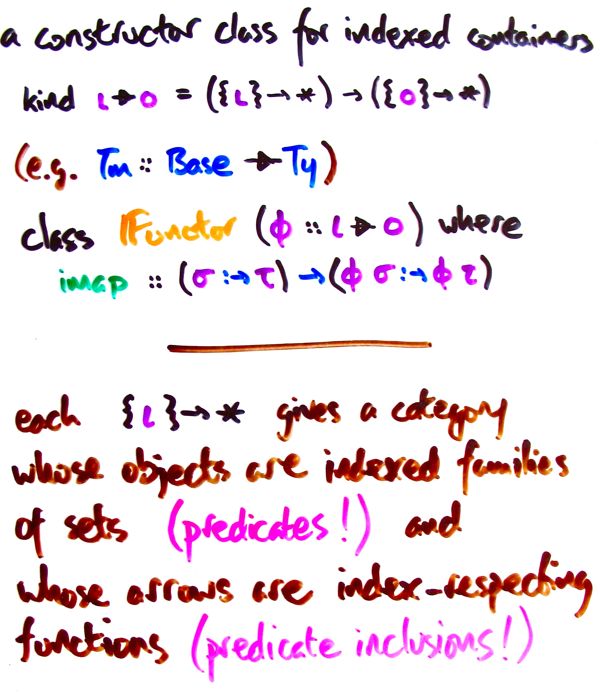 a constructor class for indexed containers
kind ι ▸ ο = ({ι} → *) → ({ο} → *)
(e.g. Tm :: Base ▸ Ty)
class IFunctor (φ :: ι ▸ ο) where
imap :: (σ :→ τ) → (φ σ :→ φ τ)
each {ι} → * gives a category
whose objects are indexed families
of sets (predicates!) and
whose arrows are index-respecting
functions (predicate inclusions!)